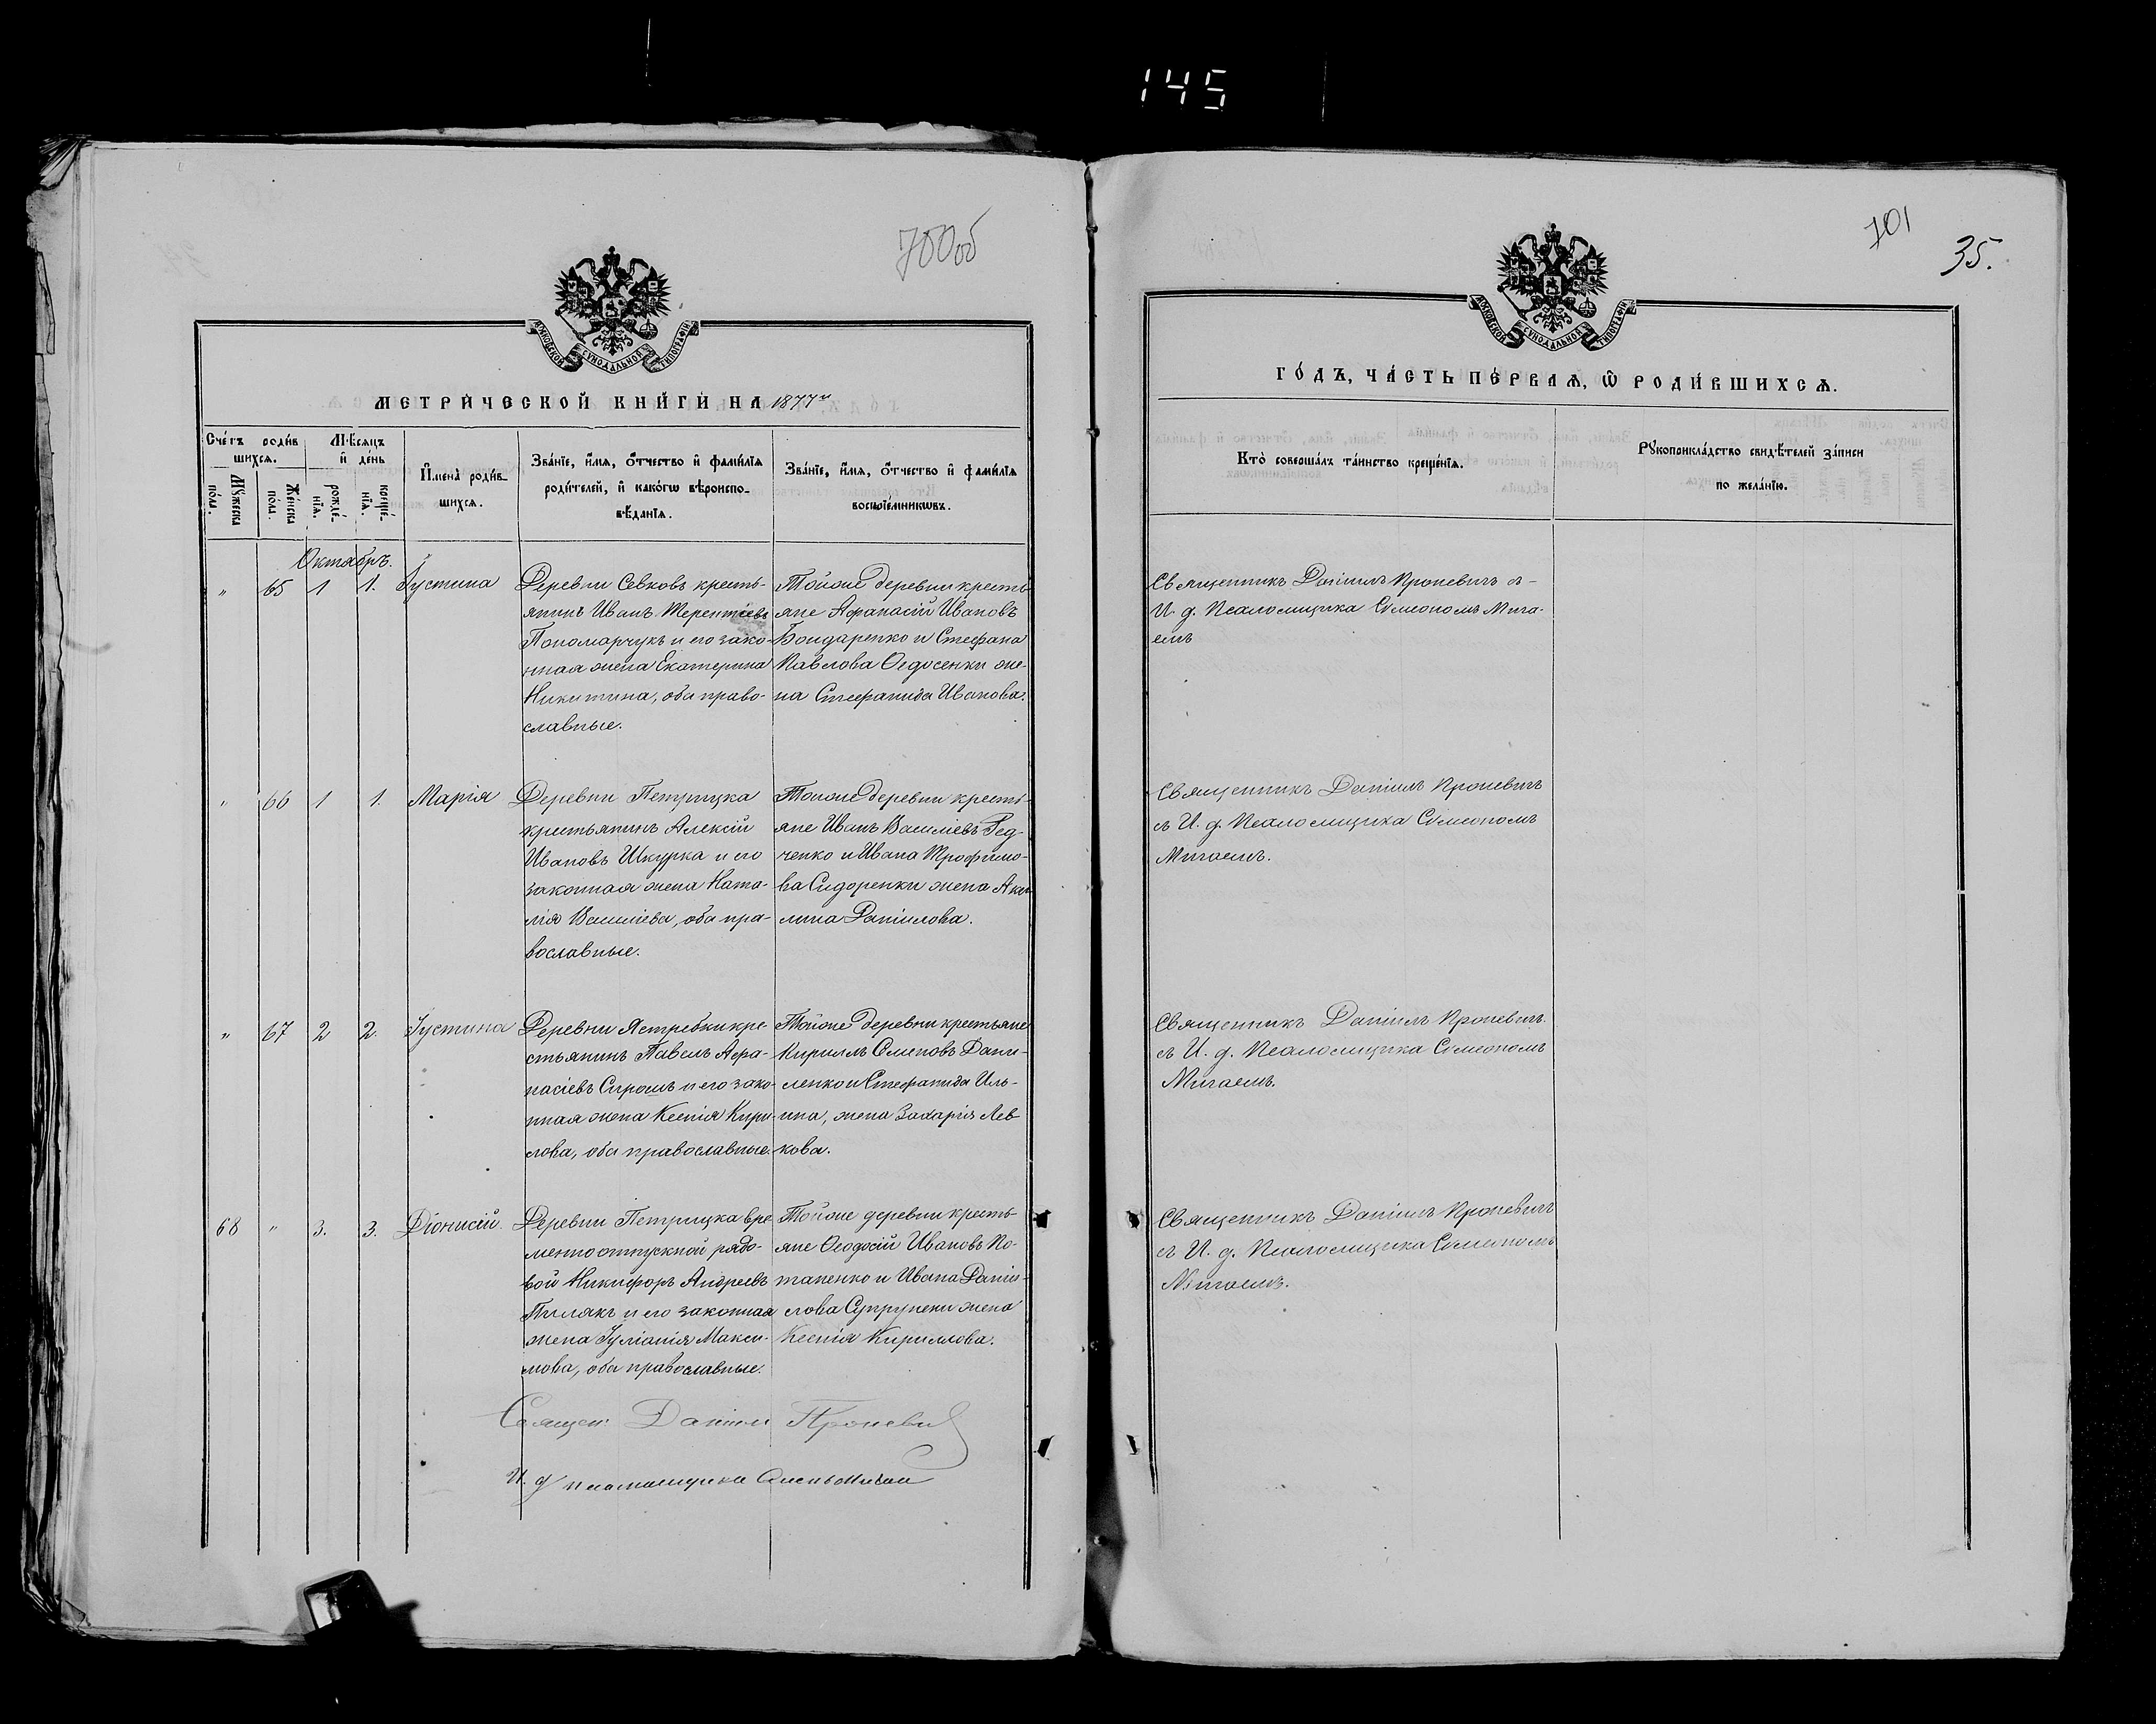 145
700об
МОСКОВСКОЙ СѴНОДАЛЬНОЙ ТИПОГРАФІИ
МЕТРИ́ЧЕСКОЙ КНИ́ГИ НА 1877й
Сче́тъ роди́вшихсѧ.
Мѣ́сѧцъ и҆ де́нь
Мꙋ́жеска по́ла.
Же́нска пола.
рожде́нїѧ.
креще́нїѧ.
И҆мена̀ роди́вшихсѧ.
Зва́нїе, и҆́мѧ, ѻ҆́тчество и҆ фами́лїѧ
роди́телей, и҆ како́гѡ вѣроиспо-
вѣ́данїѧ.
Зва́нїе, и҆́мѧ, ѻ҆́тчество и҆ фами́лїѧ
воспрїе́мникѡвъ.
Октябрь.
" 65 1 1. Іустина
Деревни Севковъ кресть-
янинъ Иванъ Терентіевъ
Пономарчукъ и его зако-
нная жена Екатерина
Никитина, оба право-
славные.
Тойже деревни кресть-
яне Афанасій Ивановъ
Бондаренко и Стефана
Павлова Ѳедосенки же-
на Стефанида Иванова.
" 66 1 1. Марія
Деревни Петрицка
крестьянинъ Алексій
Ивановъ Шкурка и его
законная жена Ната-
лія Василіева, оба пра-
вославные.
Тойже деревни кресть-
яне Иванъ Василіевъ Ред-
ченко и Ивана Трофимо-
ва Сидоренки жена Аку-
лина Даніилова.
" 67 2 2. Іустина
Деревни Ястребки кре-
стьянинъ Павелъ Афа-
насіевъ Сирошъ и его зако-
нная жена Ксенія Кири-
лова, оба православные.
Тойже деревни крестьяне
Кириллъ Дани-
ленко и Стефанида Иль-
ина, жена Захарія Лев
кова.
68 " 3. 3. Діонисій.
Деревни Петрицка вре-
менноотпускной рядо-
вой Никифоръ Андреевъ
Пилякъ и его законная
жена Іуліанія Макси-
мова, оба православные.
Тойже деревни кресть-
яне Ѳеодосій Ивановъ По-
тапенко и Ивана Даніи-
лова Супрунени жена
Ксенія Кириллова.
Священ: Даніил Кроневич
И. д псаломщика
701
35.
МОСКОВСКОЙ СѴНОДАЛЬНОЙ ТИПОГРАФІИ
ГО́ДЪ, ЧА́СТЬ ПЕ́РВАѦ, Ѡ҆ РОДИ́ВШИХСѦ.
Кто̀ соверша́лъ та́инство креще́нїѧ.
Рꙋкоприкла́дство свидѣ́телей за́писи
по жела́нїю.
Священникъ Даніилъ Кроневичъ съ
И. д. Псаломщика Симеономъ Мига-
емъ
Священникъ Даніилъ Кроневичъ
съ И. д. Псаломщика Симеономъ
Мигаемъ.
Священникъ Даніилъ Кроневичъ.
съ И. д. Псаломщика Симеономъ
Мигаемъ.
Священникъ Даніилъ Кроневичъ
съ И. д. Псаломщика Симеономъ
Мигаемъ.